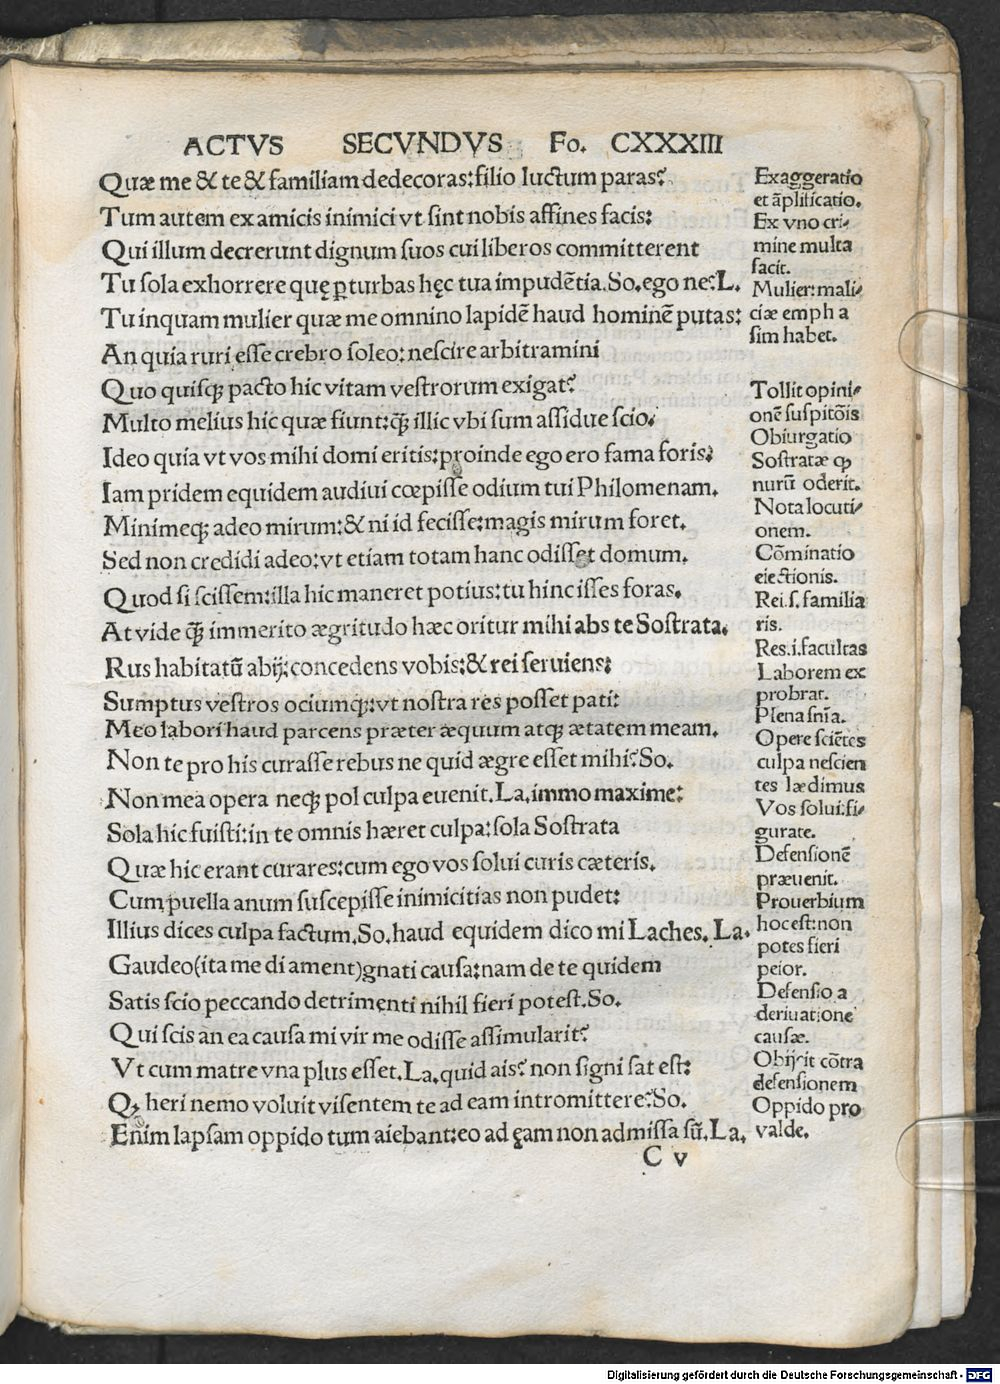 ACTVS SECVNDVS Fo. CXXXIII
Quæ me & te & familiam dedecoras: filio luctum paras?
Tum autem ex amicis inimici vt ſint nobis affines facis:
Qui illum decrerunt dignum ſuos cui liberos committerent
Tu ſola exhorrere quę ꝑturbas hęc tua impudētia. So. ego ne? L.
Tu inquam mulier quæ me omnino lapidē haud hominē putas:
An quia ruri eſſe crebro ſoleo: neſcire arbitramini
Quo quiſqꝫ pacto hic vitam veſtrorum exigat?
Multo melius hic quæ fiunt: qꝫ̄ illic vbi ſum aſſidue ſcio.
Ideo quia vt vos mihi domi eritis: proinde ego ero fama foris:
Iam pridem equidem audiui cœpiſſe odium tui Philomenam.
Minimeqꝫ adeo mirum: & ni id feciſſe: magis mirum foret.
Sed non credidi adeo: vt etiam totam hanc odiſſet domum.
Quod ſi ſciſſem: illa hic maneret potius: tu hinc iſſes foras.
At vide qꝫ̄ immerito ægritudo hæc oritur mihi abs te Soſtrata.
Rus habitatū abij: concedens vobis: & rei ſeruiens:
Sumptus veſtros ociumqꝫ: vt noſtra res poſſet pati:
Meo labori haud parcens præter æquum atqꝫ ætatem meam.
Non te pro his curaſſe rebus ne quid ægre eſſet mihi? So.
Non mea opera neqꝫ pol culpa euenit. La. immo maxime:
Sola hic fuiſti: in te omnis hæret culpa: ſola Soſtrata
Quæ hic erant curares: cum ego vos ſolui curis cæteris.
Cum puella anum ſuſcepiſſe inimicitias non pudet:
Illius dices culpa factum. So. haud equidem dico mi Laches. La.
Gaudeo (ita me di ament) gnati cauſa: nam de te quidem
Satis ſcio peccando detrimenti nihil fieri poteſt. So.
Qui ſcis an ea cauſa mi vir me odiſſe aſſimularit?
Vt cum matre vna plus eſſet. La. quid ais? non ſigni ſat eſt:
Qꝫ heri nemo voluit viſentem te ad eam intromittere? So.
Enim lapſam oppido tum aiebant: eo ad ęam non admiſſa ſū. La.
C v
Exaggeratio
et āplificatio.
Ex vno cri⸗
mine multa
facit.
Mulier: mali⸗
ciæ emph a
ſim habet.
Tollit opini⸗
onē ſuſpitōis
Obiurgatio
Soſtratæ qꝫ
nurū oderit.
Nota locuti⸗
onem.
Cōminatio
eiectionis.
Rei. ſ. familia
ris.
Res. i. facultas
Laborem ex
probrat.
Plena ſnīa.
Opere ſciētes
culpa neſcien
tes lædimus
Vos ſolui: fi⸗
gurate.
Defenſionē
præuenit.
Prouerbium
hoc eſt: non
potes fieri
peior.
Defenſio a
deriuatione
cauſæ.
Obijcit cōtra
defenſionem
Oppido pro
valde.
Digitalisierung gefördert durch die Deutsche Forschungsgemeinschaft - DFG